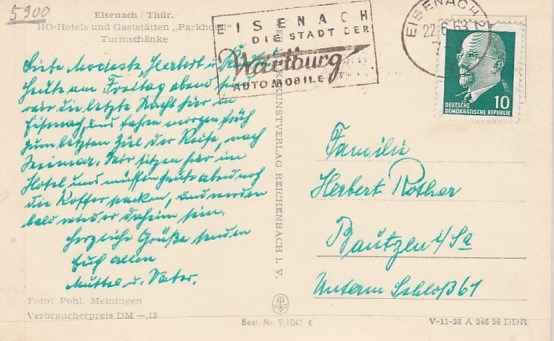 5900
Eisenach / Thür.
HO-Hotels und Gaststätten „Parkhotel"
Turmschänke
EISENACH
DIE STADT DER
Wartburg
AUTOMOBILE
EISENACH
22.6.63
10
DEUTSCHE
DEMOKRATISCHE REPUBLIK
Liebe Modesta, Herbert u.
heute am Freitag abend sind
wir die letzte Nacht hier in
Eisenach und fahren morgen früh
zum letzten Ziel der Reise, nach
Weimar. Wir sitzen hier im
Hotel und müssen heute abend noch
die Koffer packen, und werden
bald wieder daheim sein.
Herzliche Grüße senden
Euch allen
Mutter u. Vater.
KUNSTVERLAG REICHENBACH I. V.
Familie
Herbert Rother
Bautzen i/Sa
Unterm Schloß 61
Foto: Pohl, Meiningen
Verbraucherpreis DM —,15
Best.-Nr. 9 1041 K
V-11-28 A 346 56 DDR